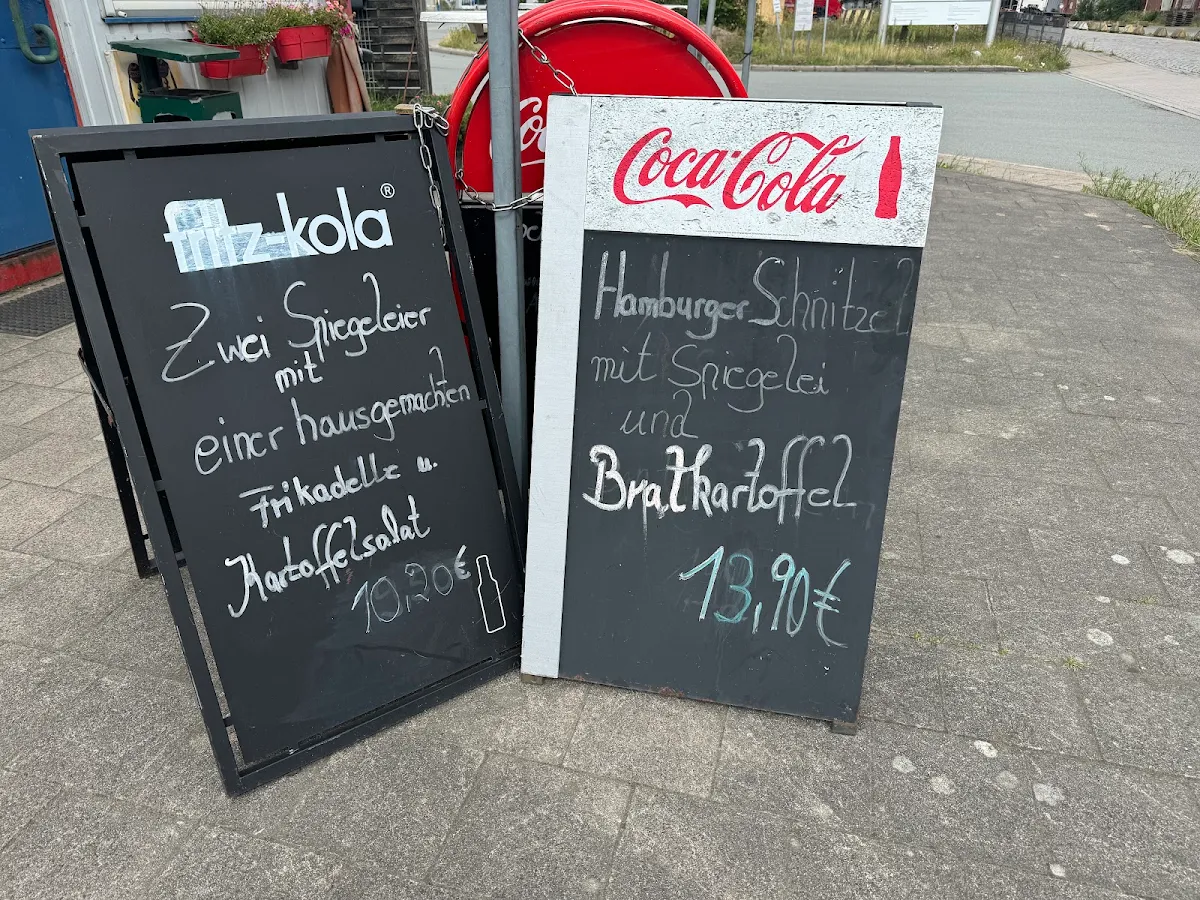 fritz-kola®
Zwei Spiegeleier
mit
einer hausgemachten
Frikadelle u.
Kartoffelsalat
10,20€
Coca-Cola
Hamburger Schnitzel
mit Spiegelei
und
Bratkartoffel
13,90€